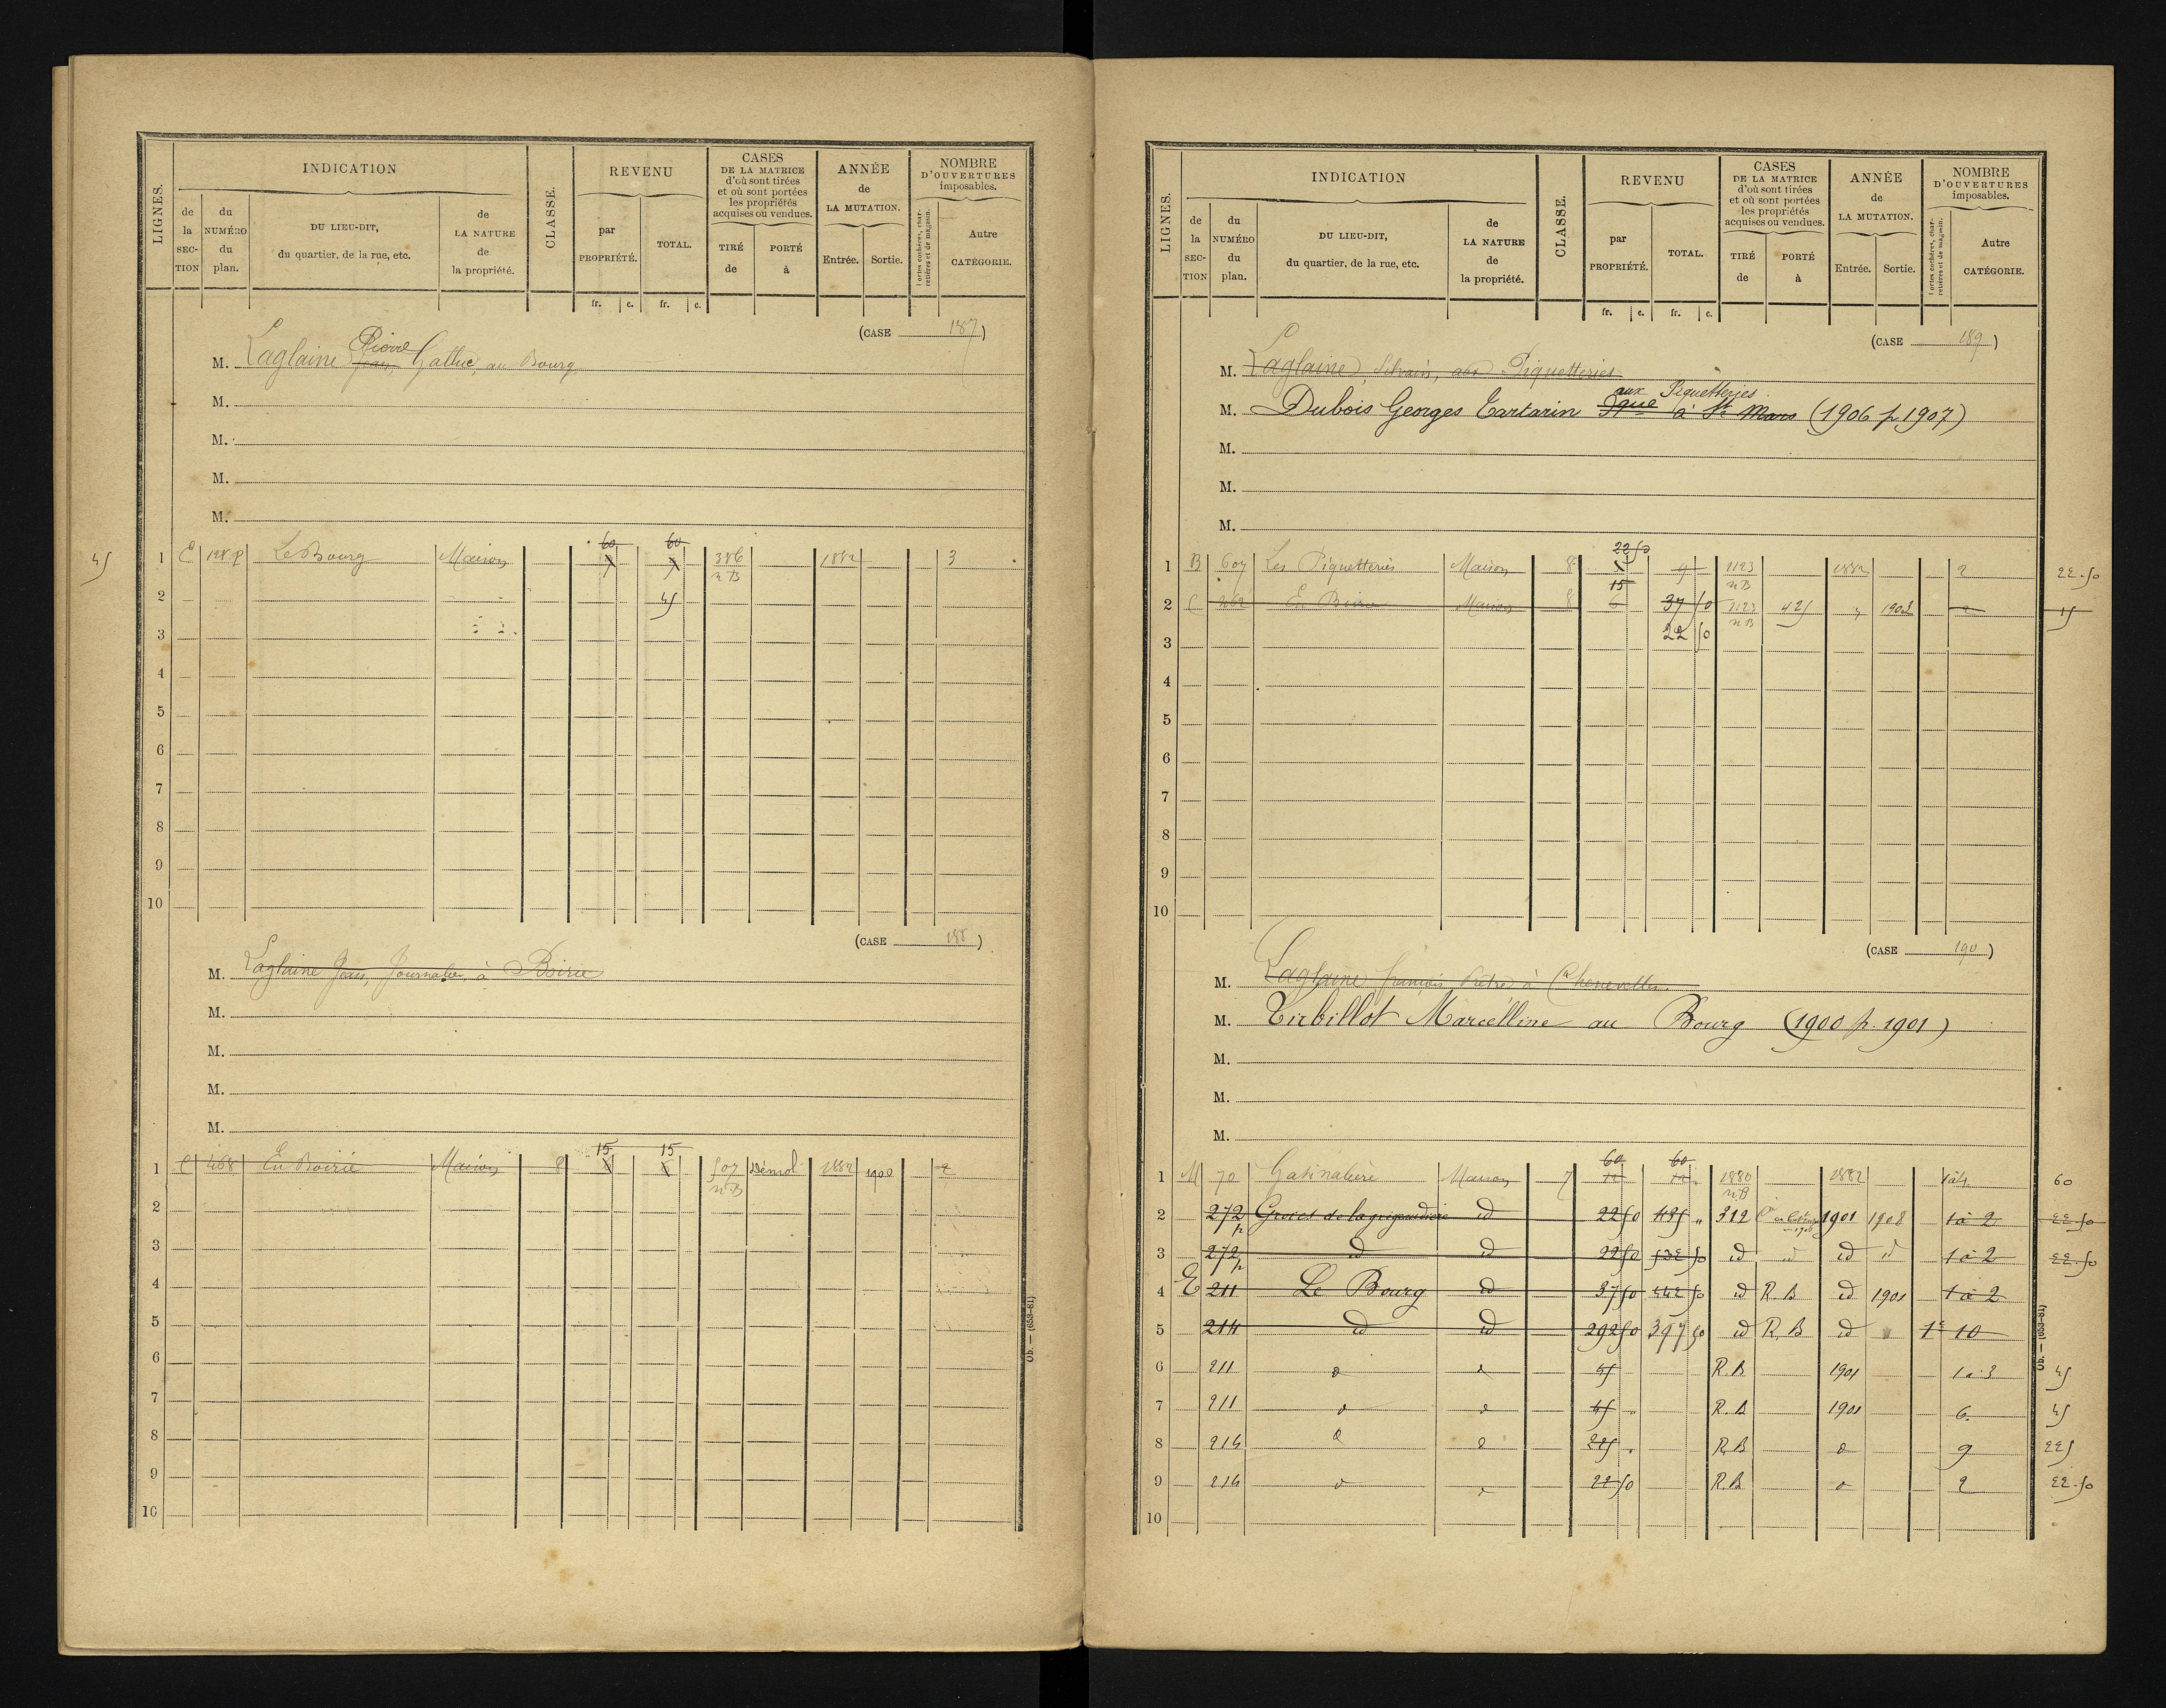 INDICATION
CLASSE.
REVENU
CASES
DE LA MATRICE
d'où sont tirées
et où sont portées
les propriétés
acquises ou vendues.
ANNÉE
de
LA MUTATION.
NOMBRE
D'OUVERTURES
imposables.
LIGNES.
de la SECTION
du NUMÉRO du plan.
DU LIEU-DIT,
du quartier, de la rue, etc.
de LA NATURE de la propriété.
par PROPRIÉTÉ.
TOTAL.
TIRÉ de
PORTÉ à
Entrée.
Sortie.
Portes cochères, charretières et de magasin.
Autre CATÉGORIE.
fr. c. fr. c.
(CASE 187)
M. Laglaine Jean Pierre Galluc, au Bourg
M.
M.
M.
M.
45 1 E 198 p Le Bourg Maison 60 60 386 1882 3
n B
2 45
3
4
5
6
7
8
9
10
(CASE 188)
M. Laglaine Jean, Journalier, à Boirie
M.
M.
M.
M.
15 15
1 C 468 En Boirie Maison 8 6 6 507 Démol 1882 1900 2
n B
2
3
4
5
6
7
8
9
10
Ob. — (653-81)
INDICATION
CLASSE.
REVENU
CASES
DE LA MATRICE
d'où sont tirées
et où sont portées
les propriétés
acquises ou vendues.
ANNÉE
de
LA MUTATION.
NOMBRE
D'OUVERTURES
imposables.
LIGNES.
de la SECTION
du NUMÉRO du plan.
DU LIEU-DIT,
du quartier, de la rue, etc.
de LA NATURE de la propriété.
par PROPRIÉTÉ.
TOTAL.
TIRÉ de
PORTÉ à
Entrée.
Sortie.
Portes cochères, charretières et de magasin.
Autre CATÉGORIE.
fr. c. fr. c.
(CASE 189)
M. Laglaine, Silvain, aux Piquetteries
aux Piquetteries
M. Dubois Georges Tartarin à St Mars (1906 p. 1907)
M.
M.
M.
22 50
1 B 607 Les Piquetteries Maison 8 9 1123 1882 2 22.50
15 n B
2 C 462 En Boirie Maison 8 6 37 50 1123 425 " 1903 2 15
n B
3 22 50
4
5
6
7
8
9
10
(CASE 190)
M. Laglaine françois Prêtre à Chenevelles
M. Tirbillot Marcelline au Bourg (1900 p. 1901)
M.
M.
M.
60 60
1 M 70 Gatinalière Maison 7 12 12 1880 1882 1 à 4 60
n B
2 272 p id 22 50 312 1901 1908 1 à 2 22.50
3 272 p id id 22 50 id id id id 1 à 2 22.50
4 E 211 Le Bourg id 37 50 50 id R. B id 1901 1 à 2
5 214 id id 292 50 397 50 id R. B id " 1 10
6 211 d d 45 R. B 1901 1 à 3 45
7 211 d d 45 " R. B 1901 6 45
8 214 d d 225 " R. B d 9 225
9 214 d d 22 50 R. B d 2 22.50
10
Ob. — (653-81)